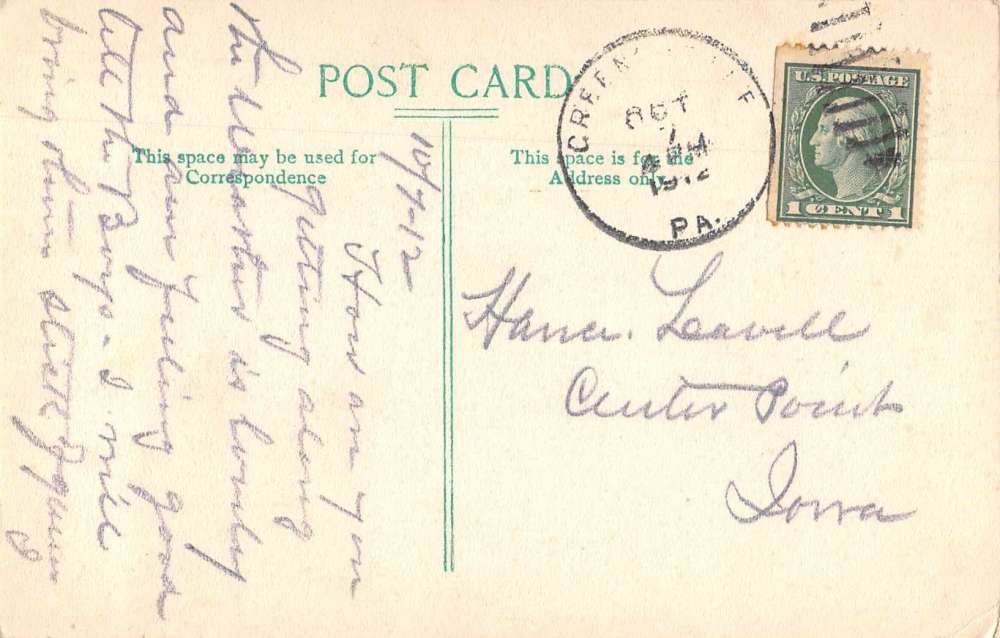 POST CARD
This space may be used for
Correspondence
This space is for the
Address only.
GREEN
OCT
7
PM
1912
PA.
U.S. POSTAGE
1 CENT 1
Leavell
Center Point
Iowa
10/7-12
How are you
getting along
the Weather is lovely
and am feeling good
tell the Boys. I will
bring them
I